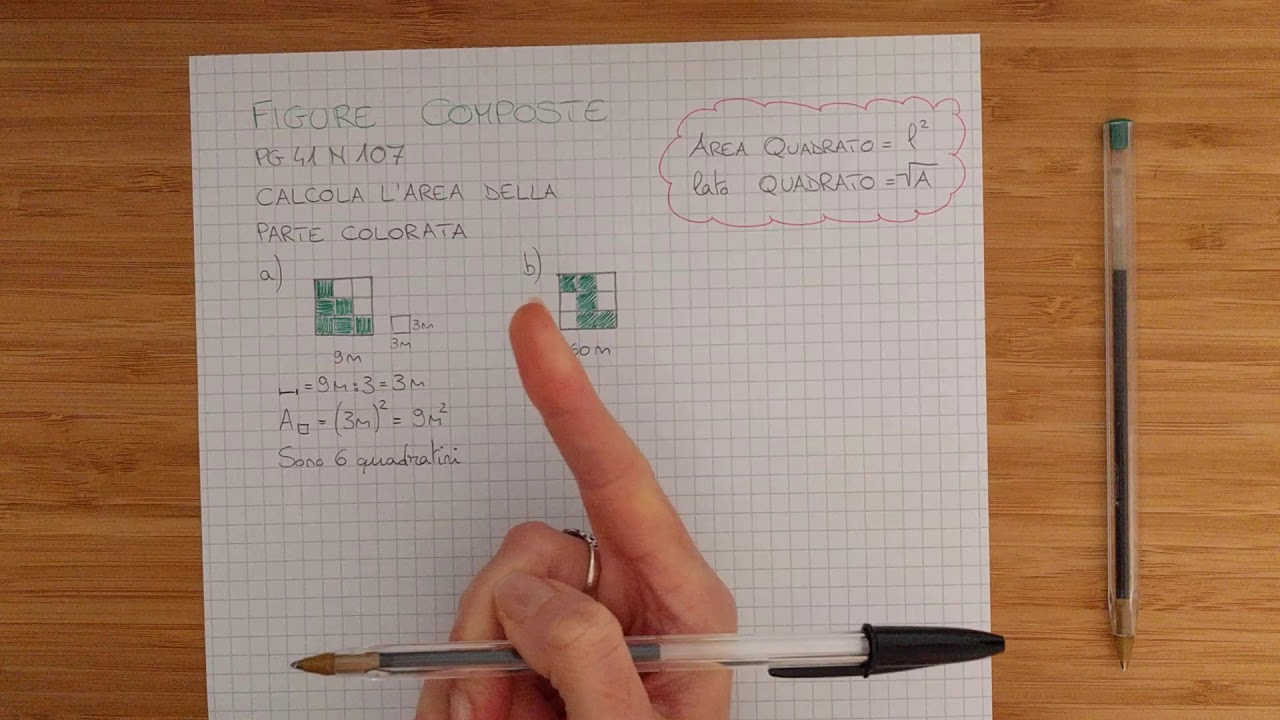 FIGURE COMPOSTE
PG 41 N 107
CALCOLA L'AREA DELLA
PARTE COLORATA
AREA QUADRATO = l²
lato QUADRATO = √A
a)
3m
3m
9m
= 9m:3 = 3m
A□ = (3m)² = 9m²
Sono 6 quadratini
b)